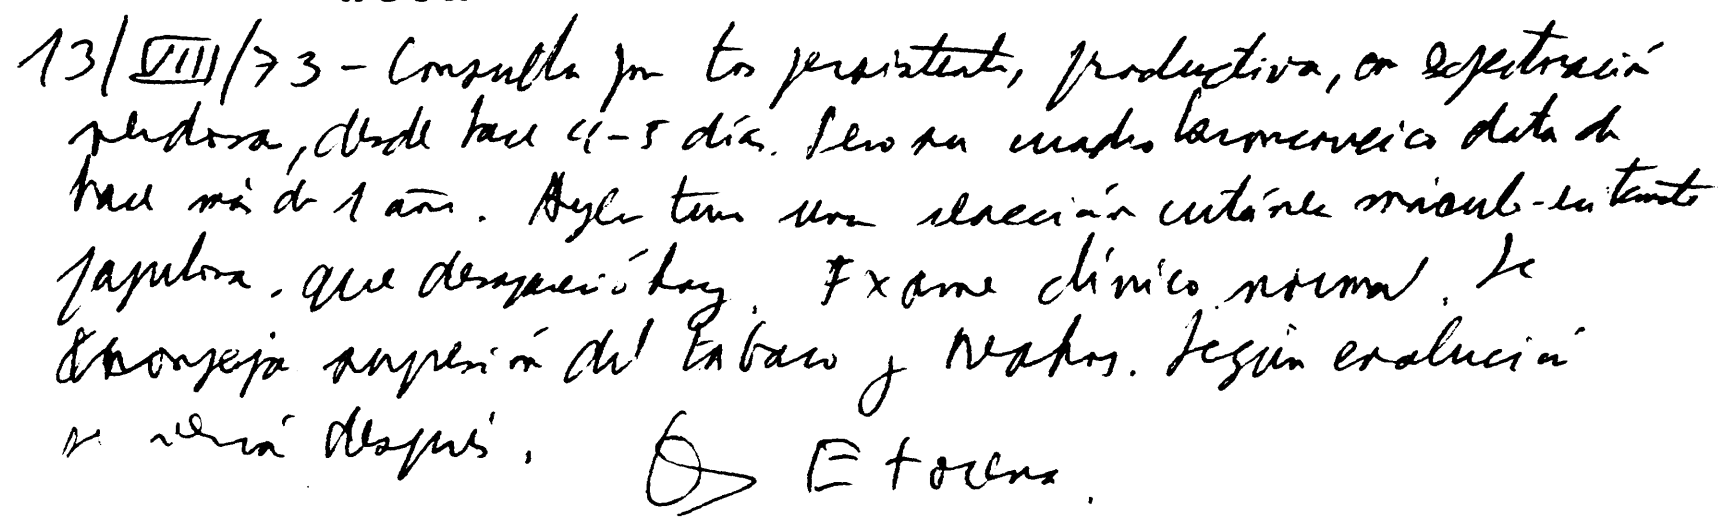 13/VIII/73 - Consulta por tos persistente, productiva, con expectoración
verdosa, desde hace 4-5 días. Pero su cuadro data de
hace más de 1 año. Ayer tuvo una reacción cutánea máculo-eritemato
papulosa, que desapareció hoy. Examen clínico normal. Se
aconseja supresión del tabaco y nebulizac. Según evolución
se verá después.